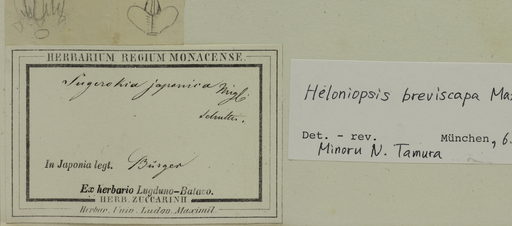 HERBARIUM REGIUM MONACENSE.
Sugerokia japonica Miql
In Japonia legt. Bürger
Ex herbario Lugduno-Batavo.
HERB. ZUCCARINII
Herbar. Univ. Ludov. Maximil.
Heloniopsis breviscapa Max
Det. - rev. München, 6.
Minoru N. Tamura